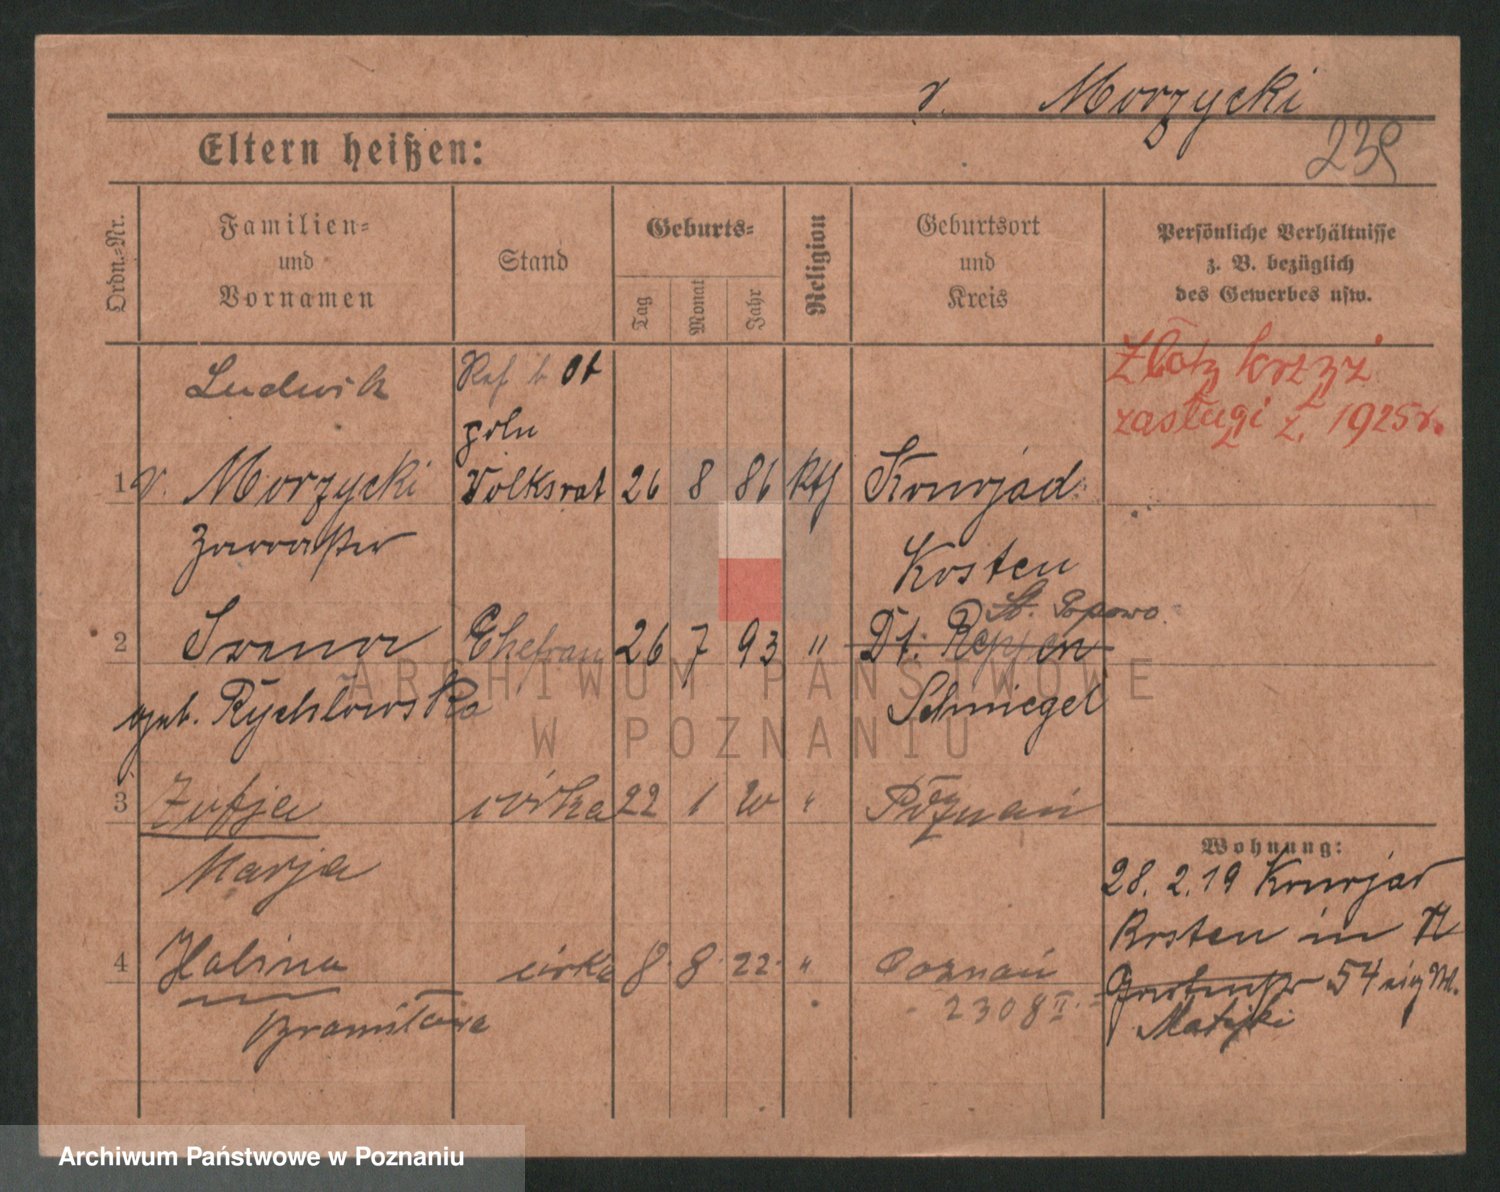 v. Morzycki
239
Eltern heißen:
Ordn.-Nr.
Familien-
und
Vornamen
Stand
Geburts-
Tag
Monat
Jahr
Religion
Geburtsort
und
Kreis
Persönliche Verhältnisse
z. B. bezüglich
des Gewerbes usw.
Złoty krzyż
zasługi z. 1925 r.
Ludwik
poln
1 v. Morzycki Volksrat 26 8 86 kth
Kosten
St. Popowo
2 Irena Ehefrau 26 7 93 "
geb. Rychłowska Schmiegel
3 Zofja córka 22 1 20 " Poznań
Marja
Wohnung:
28. 2. 19
Kosten in
4 Halina córka 8. 8. 22. " Poznań
54
2308 II.
Bronisława
Matejki
ARCHIWUM PAŃSTWOWE
W POZNANIU
Archiwum Państwowe w Poznaniu